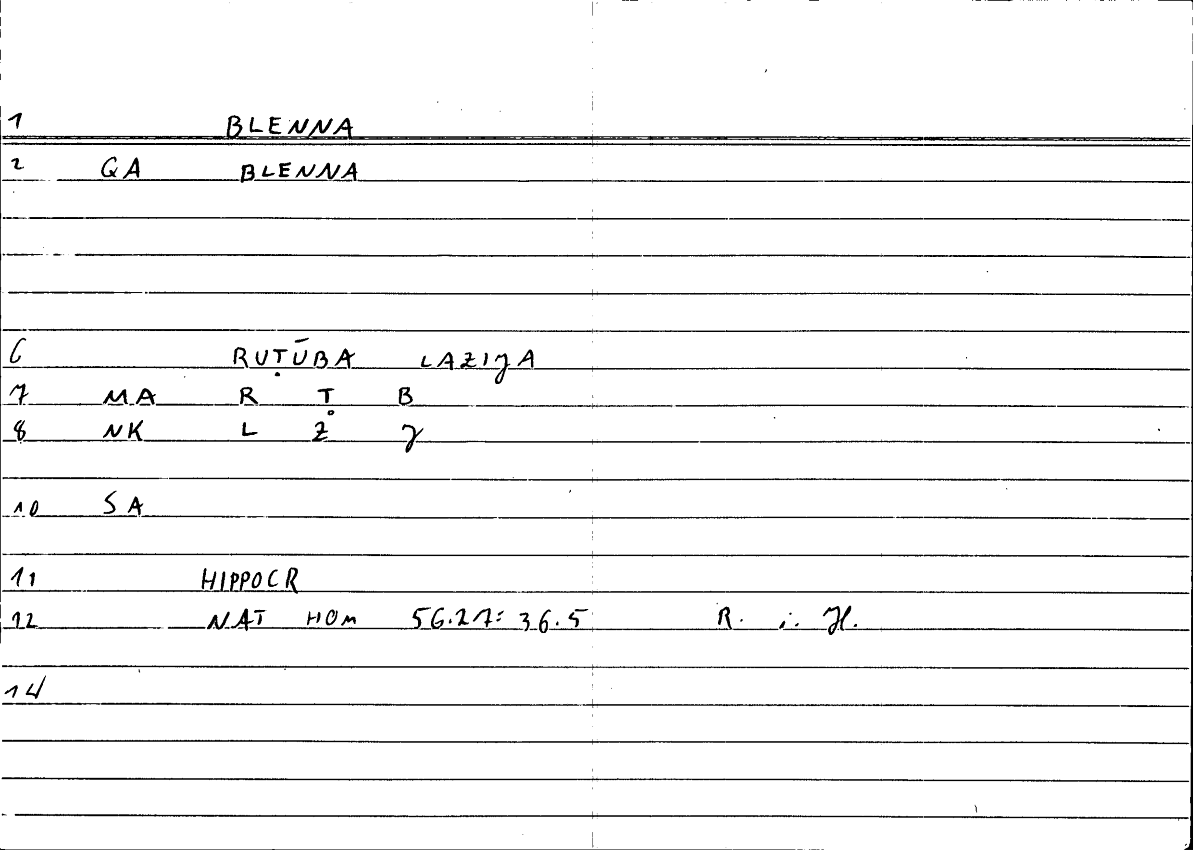 1 BLENNA
2 GA BLENNA
6 RUṬŪBA LAZIJA
7 MA R Ṭ B
8 NK L Z J
10 SA
11 HIPPOCR
12 NAT HOM 56.27: 36.5 R. i. H.
14